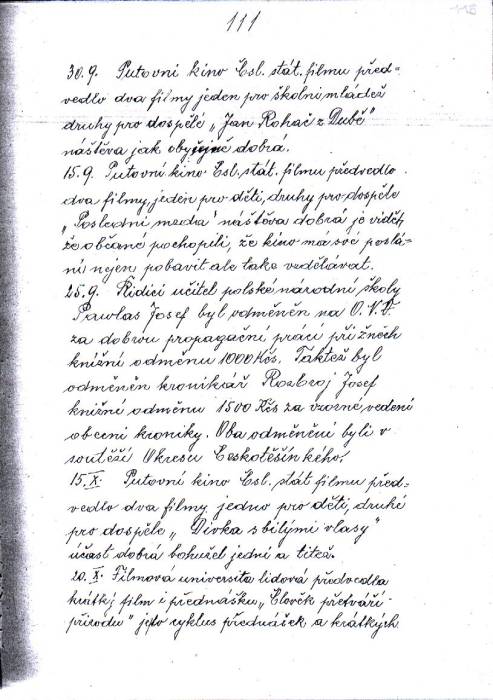 111
30.9. Putovni kino Čsl. stát. filmu před-
vedlo dva filmy jeden pro školni mládež
druhy pro dospělé „Jan Rohač z Dubé"
náštěva jak obyčejně dobrá.
15.9. Putovní kino Čsl. stát. filmu předvedlo
dva filmy, jeden pro děti, druhy pro dospěle
„Posledni meda" náštěva dobrá je viděti,
že občané pochopili, že kino má své poslá-
ní nejen pobavit ale take vzdělávat.
25.9. Řidici učitel polské národní školy
Pawlas Josef byl odměněn na O.N.V.
za dobrou propagační práci při žněch
knižní odměnu 1000 Kčs. Taktéž byl
odměněn kronikář Rozbroj Josef
knižné odměnu 1500 Kčs za vzorné vedení
obecni kroniky. Oba odměnění byli v
soutěži Okresu Českotěšínkého.
15.X. Putovní kino Čsl. stát filmu před-
vedlo dva filmy jedno pro děti, druhé
pro dospěle „Divka s bilými vlasy"
účast dobrá bohužel jedni a titéž.
20.X. Filmová universita lidová předvedla
krátký film i přednášku „Člověk přetváří
přirodu" je to cyklus přednášek a krátkých